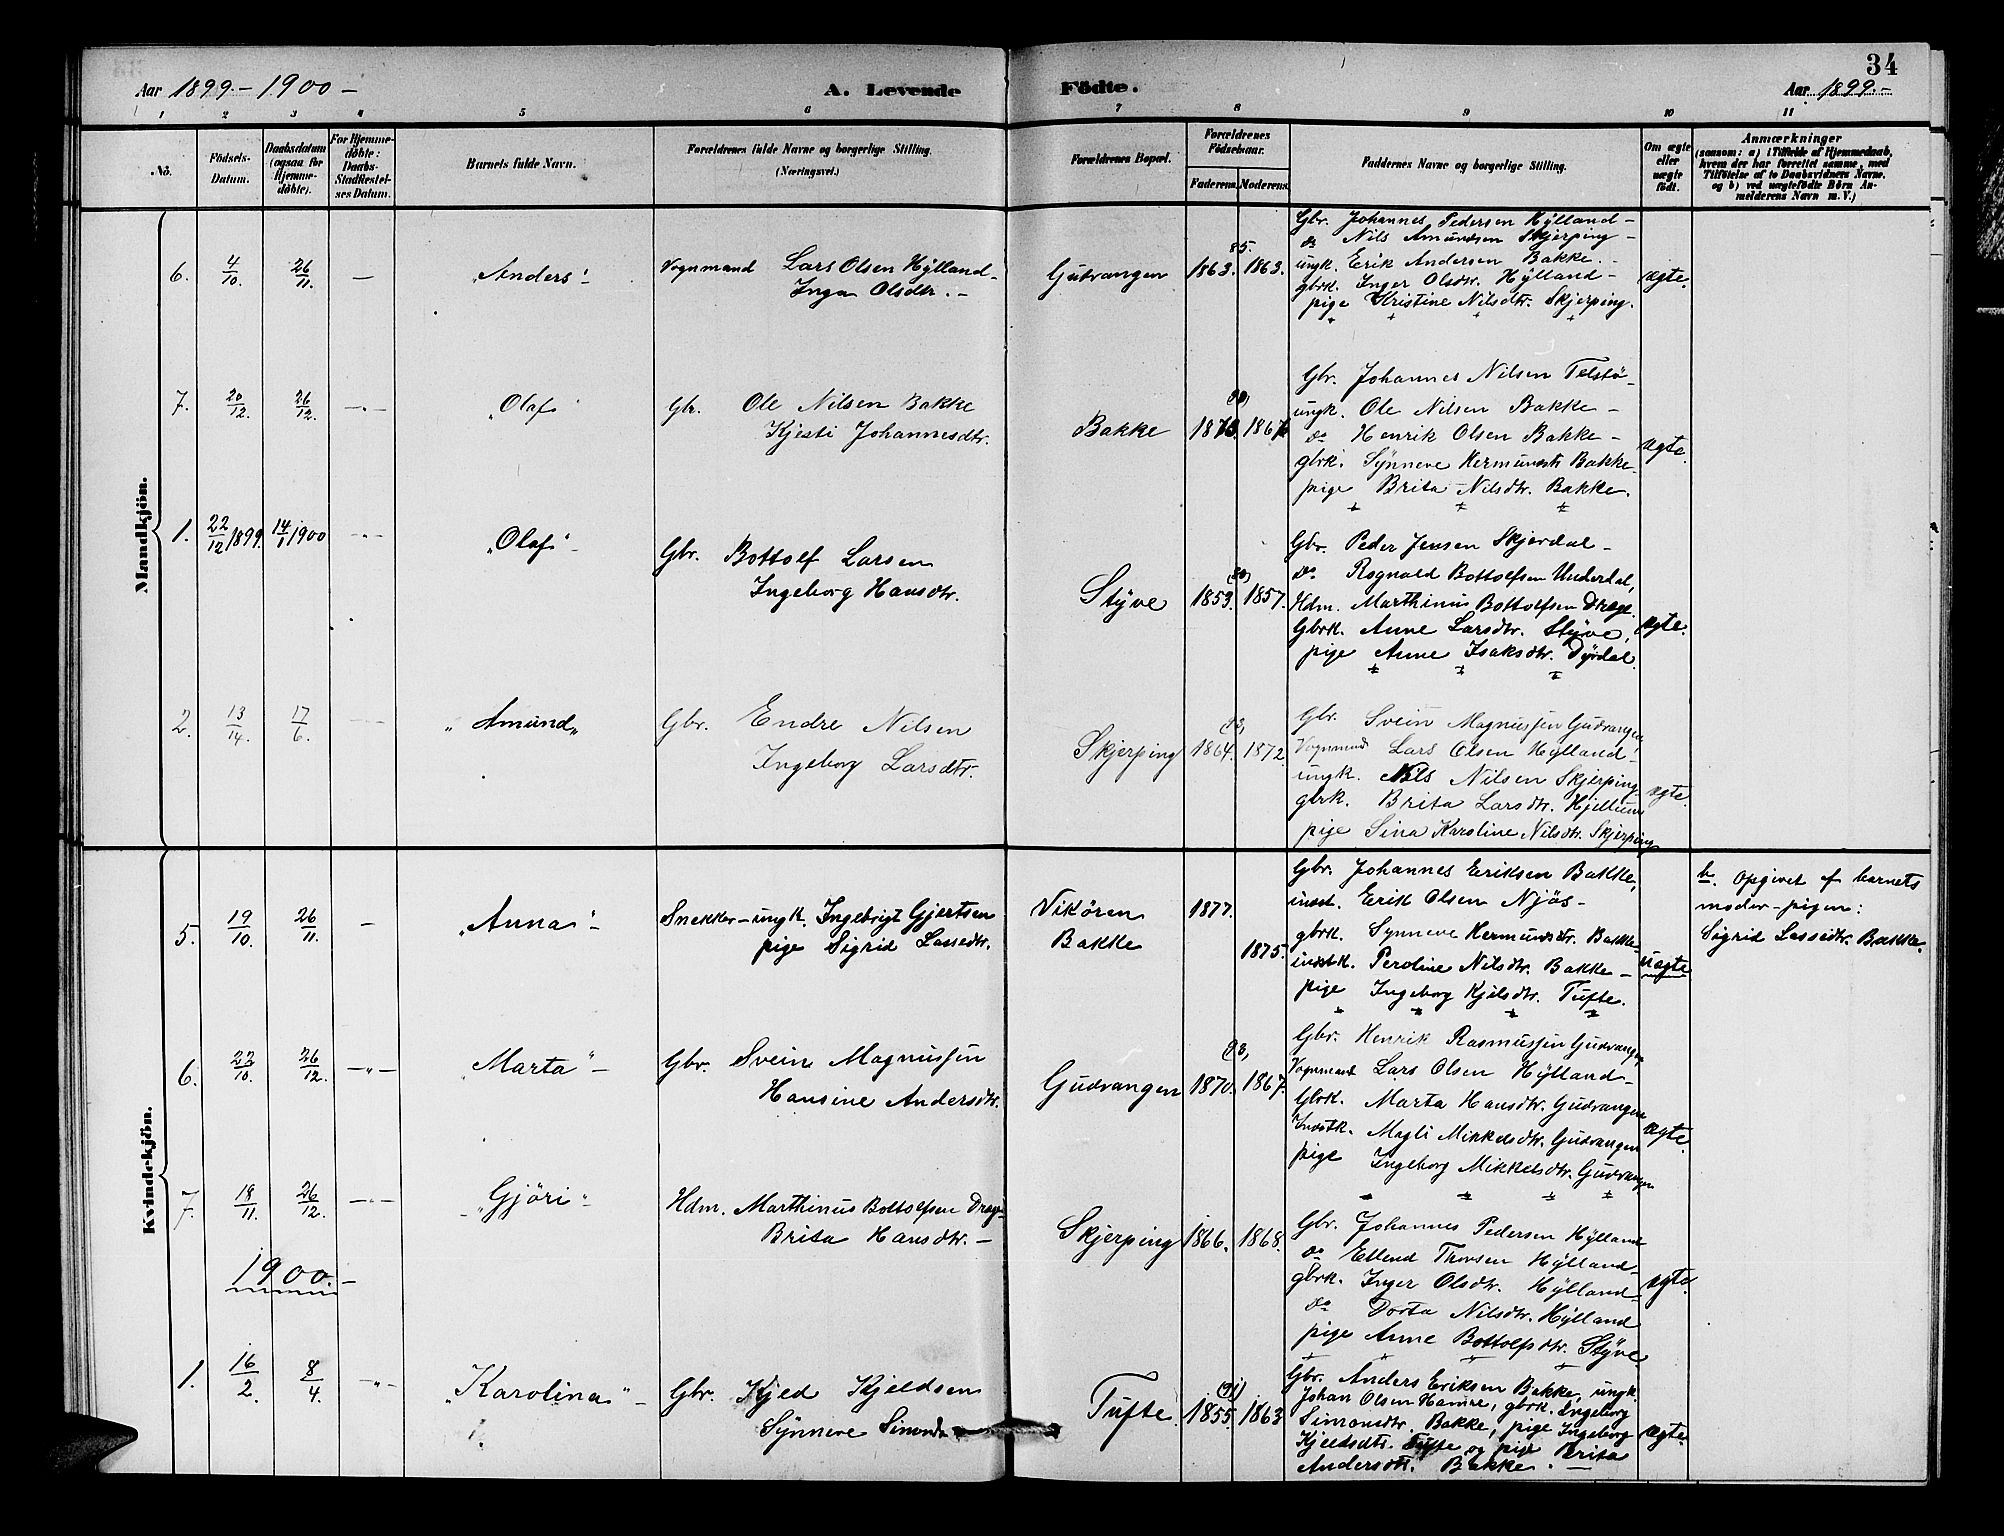 34
Aar 1899.- 1900 -
A. Levende Födte.
Aar 1899.-
1 2 3 4 5 6 7 8 9 10 11
No.
Födsels-Datum.
Daabsdatum (ogsaa for Hjemmedöbte).
For Hjemmedöbte: Daabs-Stadfæstelses Datum.
Barnets fulde Navn.
Forældrenes fulde Navne og borgerlige Stilling. (Næringsvei.)
Forældrenes Bopæl.
Forældrenes Födselsaar.
Faderens. Moderens.
Faddernes Navne og borgerlige Stilling.
Om ægte eller uægte födt.
Anmærkninger
(saasom: a) i Tilfælde af Hjemmedaab, hvem der har forrettet samme, med Tilföielse af to Daabsvidners Navne, og b) ved uægtefödte Börn Anmelderens Navn m. V.)
Mandkjön.
6. 4/10. 26/11. — "Anders" Vognmand Lars Olsen Hÿlland-
Inga Olsdtr. -
Gudvangen 1863. 85. 1863.
Gbr. Johannes Pedersen Hÿlland -
do Nils Amundsen Skjerping -
ungk. Erik Andersen Bakke. -
gbrk. Inger Olsdtr. Hÿlland -
pige Kristine Nilsdtr. Skjerping.
ægte.
7. 20/12. 26/12. —"— "Olaf" Gbr. Ole Nilsen Bakke
Kjesti Johannesdtr.
Bakke
Gbr. Johannes Nilsen Telstö -
ungk. Ole Nilsen Bakke -
do Henrik Olsen Bakke -
gbrk. Sÿnneve Hermundsdtr Bakke.
pige Brita Nilsdtr. Bakke.
ægte.
1. 22/12 1899. 14/1 1900 —"— "Olaf" - Gbr. Bottolf Larsen
Ingeborg Hansdtr.
Stÿve 1853. 1857.
Gbr. Peder Jensen Skjerdal -
do Rognald Bottolfsen Underdal,
Hdm. Marthinus Bottolfsen Dræge.
Gbrk. Anne Larsdtr. Stÿve,
pige Anne Isaksdtr. Dÿrdal.
ægte.
2. 13/14. 17/6. "Amund" Gbr. Endre Nilsen
Ingeborg Larsdtr.
Skjerping 1864. 93, 1872.
Gbr. Svein Magnussen Gudvangen
Vognmand Lars Olsen Hÿlland
ungk. Nils Nilsen Skjerping.
gbrk. Brita Larsdtr. Hjellum
pige Sina Karoline Nilsdtr. Skjerping
ægte.
Kvindekjön.
5. 19/10. 26/11. — "Anna" - Snekker - ungk. Ingebrigt Gjertsen
pige Sigrid Lassedtr.
Vikören 1877.
Bakke 1875.
Gbr. Johannes Eriksen Bakke,
indst. Erik Olsen Njös -
gbrk. Synneve Hermundsdtr. Bakke
indstk. Peroline Nilsdtr. Bakke -
pige Ingeborg Kjelsdtr. Tufte.
uægte
b. Opgivet af barnets
moder - pigen:
Sigrid Lassedtr. Bakke.
6. 22/10. 26/12. —"— "Marta" - Gbr. Svein Magnussen
Hansine Andersdtr.
Gudvangen 1870. 93, 1867.
Gbr. Henrik Rasmussen Gudvangen
Vognmand Lars Olsen Hÿlland -
Gbrk. Marta Hansdtr. Gudvangen
Indstk. Magli Mikkelsdtr. Gudvangen
pige Ingeborg Mikkelsdtr. Gudvangen
ægte.
7. 18/11. 26/12. —"— "Gjöri" - Hdm. Marthinus Bottolfsen Dræge
Brita Hansdtr. -
Skjerping 1866. 1868.
Gbr. Johannes Pedersen Hÿlland
do Ellend Thorsen Hÿlland -
gbrk. Inger Olsdtr. Hÿlland -
do Dorta Nilsdtr. Hÿlland
pige Anne Bottolfsdtr. Stÿve
ægte.
1900. -
1. 16/2 8/4 —"— "Karolina" - Gbr. Kjeld Kjeldsen
Sÿnneve Simonsdtr
Tufte 1855. (91) 1863
Gbr. Anders Eriksen Bakke, ungk.
Johan Olsen Hamre, gbrk. Ingeborg
Simonsdtr. Bakke, pige Ingeborg
Kjeldsdtr. Tufte og pige Brita
Andersdtr. Bakke. -
ægte.